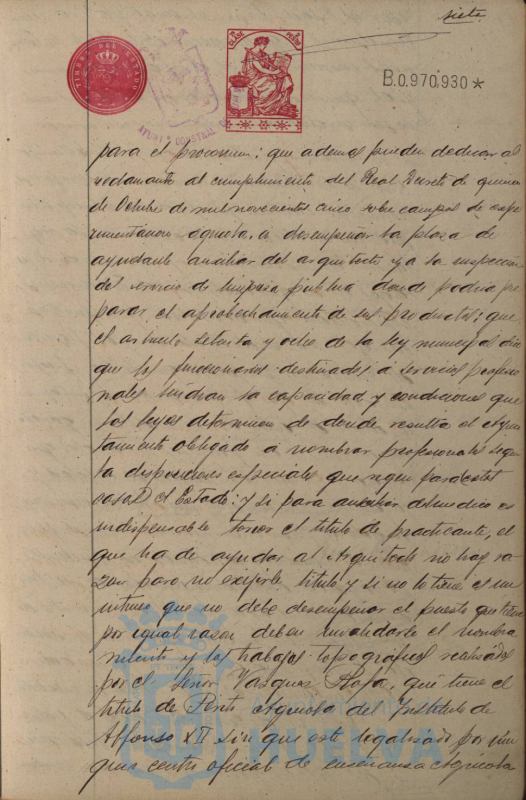 siete
TIMBRE DEL ESTADO
CLASE
B.0.970,930 *
para el procomun; que ademas pueden dedicar al
reclamante al cumplimiento del Real Decreto de quince
de Octubre de mil novecientos cinco sobre campos de expe
rimentacion agricola, a desempeñar la plaza de
ayudante auxiliar del arquitecto y a la inspeccion
del servicio de limpieza publica donde podria pre
parar el aprobechamiento de sus productos; que
el articulo setenta y ocho de la ley municipal dice
que los funcionarios destinados a servicios profesio
nales tendran la capacidad y condiciones que
las leyes determinen de donde resulta el Ayun
tamiento obligado a nombrar profesionales segun
las disposiciones especiales que rigen para estos
casos el Estado: y si para auxiliar del medico es
indispensable tener el titulo de practicante, el
que ha de ayudar al Arquitecto no hay ra
zon para no exijirle titulo y si no lo tiene es un
intruso que no debe desempeñar el puesto que tiene
por igual razon deben invalidarle el nombra
miento y los trabajos topograficos realizados
por el Señor Vazquez Rofa, que tiene el
titulo de Perito Agricola del Instituto de
Alfonso XII sin que este legalizado por nin
gun centro oficial de enseñanza Agricola
HUELVA